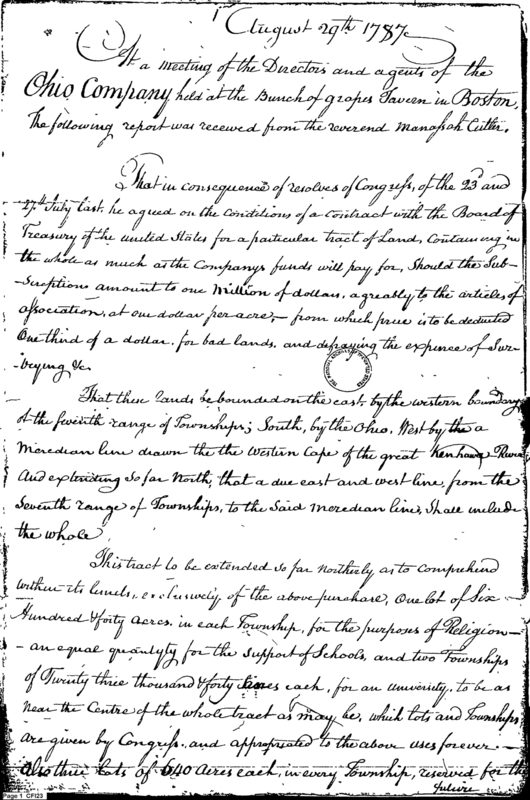 August 29th 1787
At a meeting of the Directors and agents of the
Ohio Company held at the Bunch of grapes Tavern in Boston,
The following report was received from the reverend Manassah Cutler.
That in consequence of resolves of Congress, of the 23d and
27th July last, he agued on the conditions of a contract with the Board of
Treasury of the united States for a particular tract of Land, Containing in
the whole as much as the Companys funds will pay for, Should the Sub-
-scriptions amount to one Million of dollars, agreably to the articles of
association, at one dollar per acre,— from which price is to be deducted
One third of a dollar, for bad lands, and defraying the expence of Sur-
-veying &c.
That these Lands be bounded on the east, by the western boundary
of the seventh range of Townships; South, by the Ohio, West by the a
Meredian line drawn the the Western Cape of the great Kenhawa River
And extending so far North, that a due east and west line, from the
Seventh range of Townships, to the Said Meredian line, Shall include
the whole
This tract to be extended so far northerly as to comprehend
within its limits, exclusively of the above purchase, One lot of Six
Hundred & forty acres, in each Township, for the purposes of Religion—
— an equal quantyty for the support of Schools, and two Townships
of Twenty three thousand & forty acres each, for an university, to be as
near the Centre of the whole tract as may be, which lots and Townships
are given by Congress, and appropriated to the above uses forever.—
Also three Lots of 640 Acres each, in every Township, reserved for the
future
Page 1 CFI23